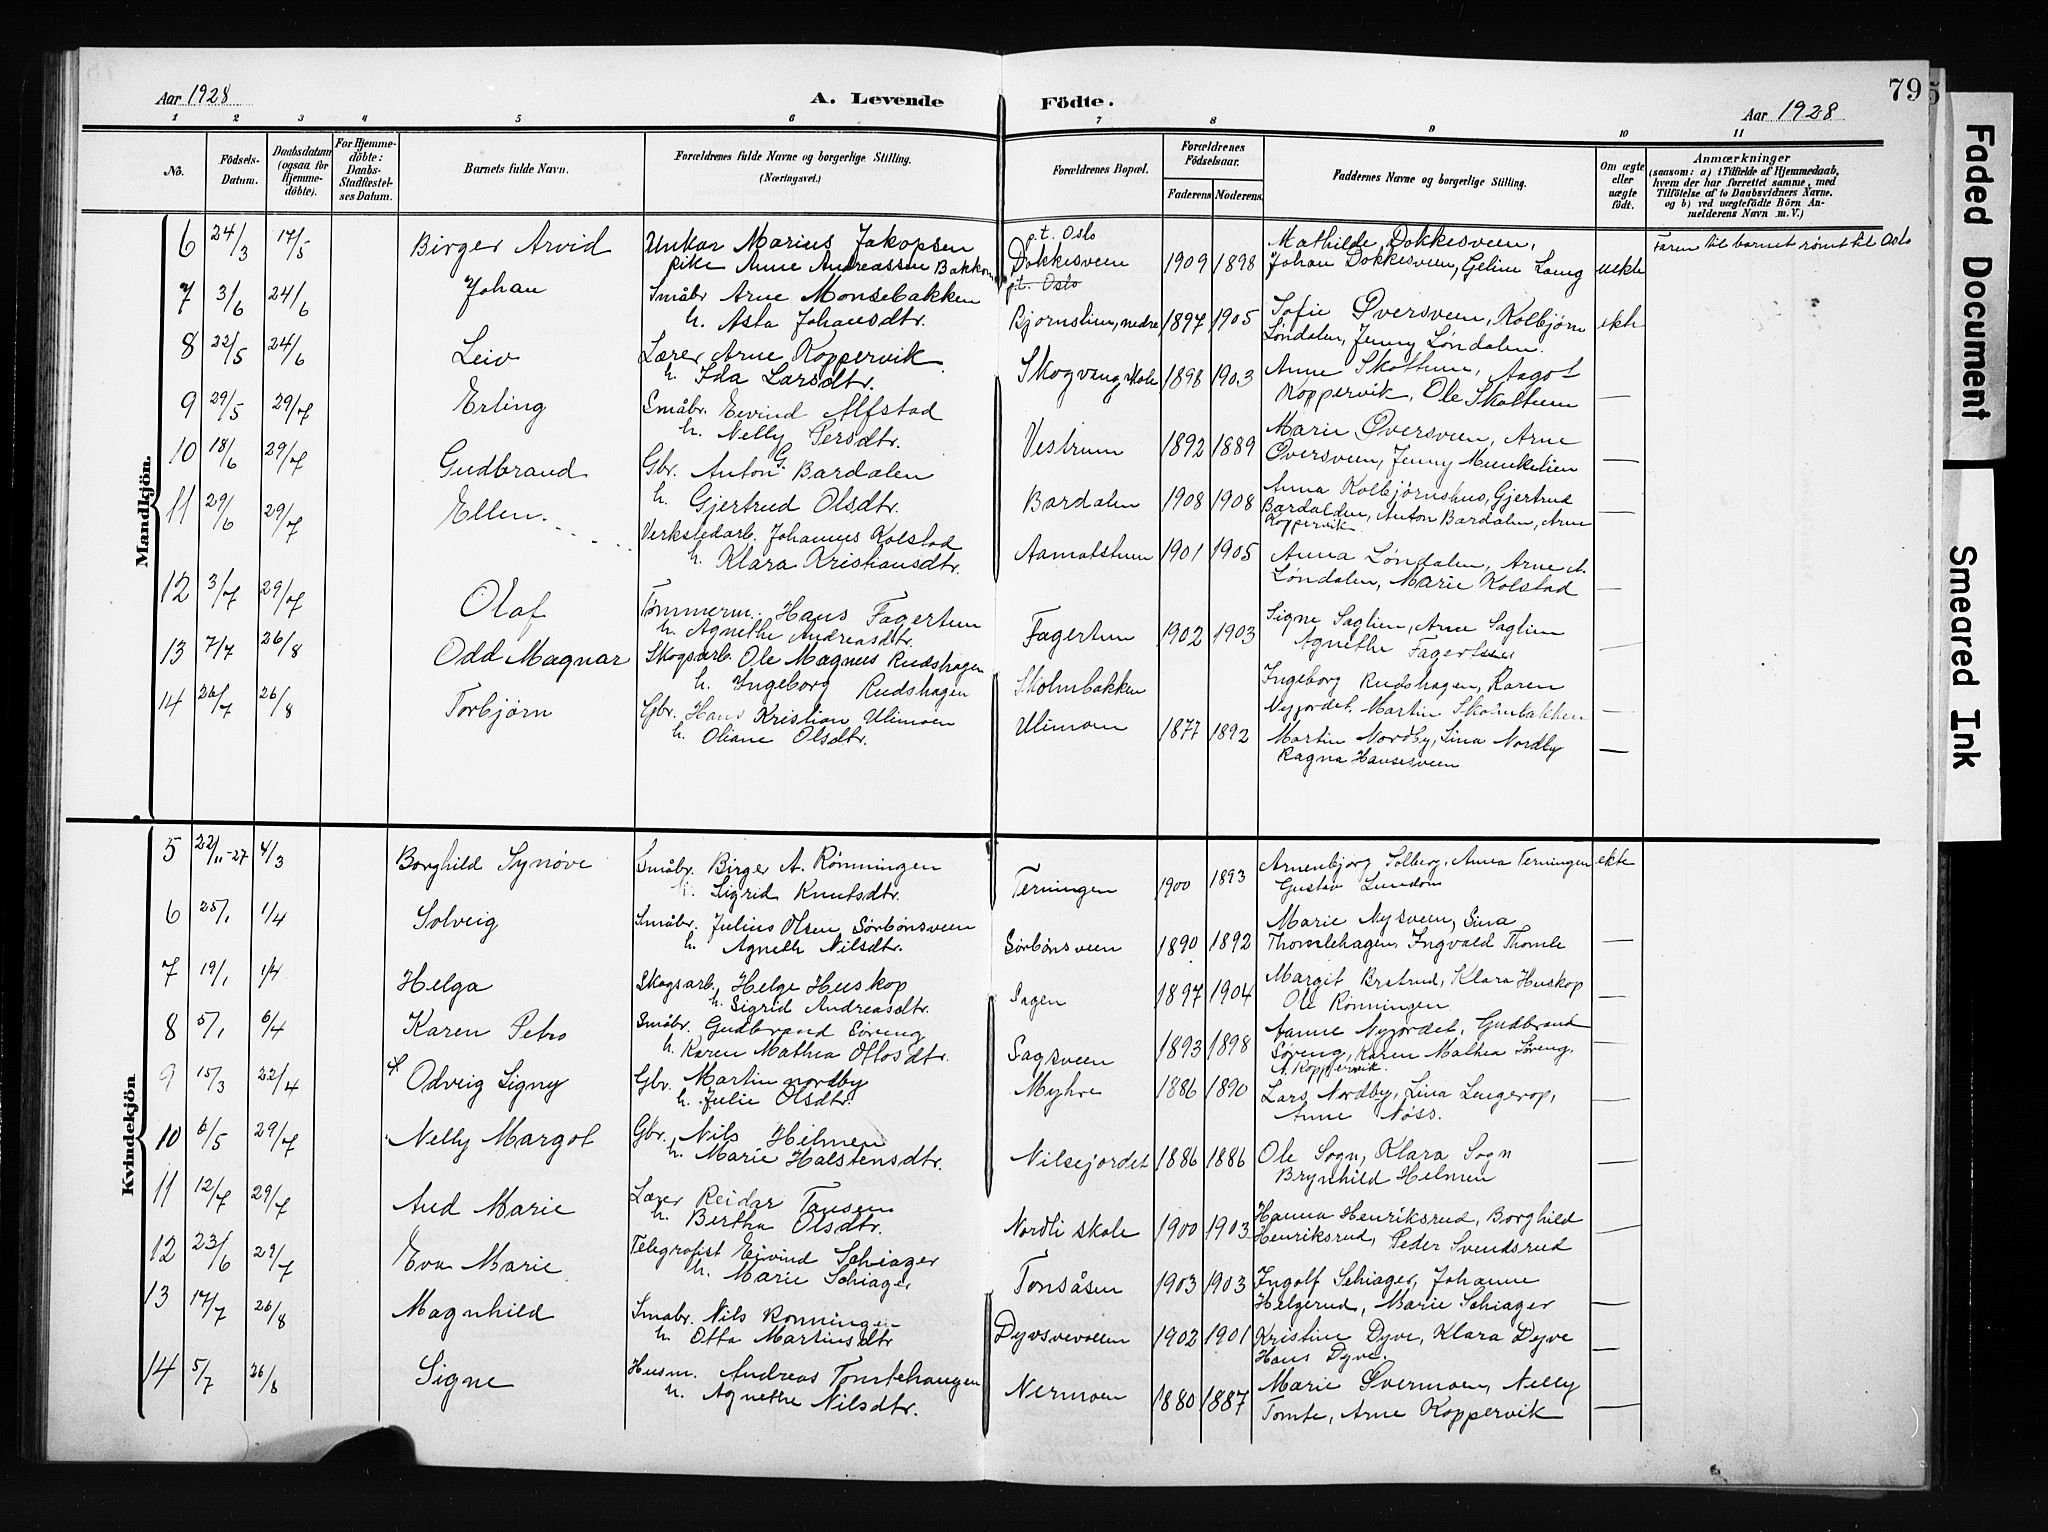 79
Aar 1928
A. Levende
Födte.
Aar 1928
1 2 3 4 5 6 7 8 9 10 11
No.
Födsels-Datum.
Daabsdatum (ogsaa for Hjemme-döbte).
For Hjemme-döbte: Daabs-Stadfæstel-ses Datum.
Barnets fulde Navn.
Forældrenes fulde Navne og borgerlige Stilling. (Næringsvei.)
Forældrenes Bopæl.
Forældrenes Födselsaar.
Faderens
Moderens
Faddernes Navne og borgerlige Stilling.
Om ægte eller uægte födt.
Anmærkninger
(saasom: a) i Tilfælde af Hjemmedaab, hvem der har forrettet samme, med Tilföielse af to Daabsvidners Navne. og b) ved uægtefödte Börn An-melderens Navn m. V.)
Mandkjön.
6 24/3 17/5 Birger Arvid Marius Jakopsen p.t. Oslo Mathilde Dokkesveen, Faren til barnet rømt til Oslo
pike Anne Andreassen Dokkesveen 1909 1898 Johan Dokkesveen, Geline uekte
p.t. Oslo
7 3/6 24/6 Johan Småbr Arne Monsebakken
h. Asta Johansdtr. Bjørnslien, nedre 1897 1905 Sofie Øversveen, Kolbjørn ekte
Løndalen, Jenny Løndalen.
8 22/5 24/6 Leiv Lærer Arne Koppervik
h. Ida Larsdtr. Skogvang skole 1898 1903 Anne Skoltum, Aagot
Koppervik, Ole Skoltum —
9 29/5 29/7 Erling Småbr. Eivind Alfstad
h. Nelly Persdtr. Vestrum 1892 1889 Marie Øversveen, Arne
Øversveen, Jenny Munkelien —
10 18/6 29/7 Gudbrand Gbr. Anton G. Bardalen
h. Gjertrud Olsdtr. Bardalen 1908 1908 Anna Kolbjørnshus, Gjertrud
Bardalen, Anton Bardalen, Arne —
Koppervik
11 29/6 29/7 Ellen Verkstedarb. Johannes Kolstad
h. Klara Kristiansdtr. Aamotshum 1901 1905 Anna Løndalen, Arne A.
Løndalen, Marie Kolstad —
12 3/7 29/7 Olaf Tømmerm. Hans Fagertun
h. Agnethe Andreasdtr. Fagertun 1902 1903 Signe Saglien, Arne Saglien
Agnethe Fagertun —
13 7/7 26/8 Odd Magnar Skogsarb. Ole Magnus Rudshagen
h. Ingeborg Rudshagen Skolmbakken Ingeborg Rudshagen, Karen
Nyjordet, Martin Skolmbakken —
14 26/7 26/8 Torbjørn Gbr. Hans Kristian Ulimoen
h. Oliane Olsdtr. Ulimoen 1877 1892 Martin Nordby, Lina Nordby
Ragna Hansesveen —
Kvindekjön
5 22/11-27 4/3 Borghild Synøve Småbr. Birger A. Rønningen
h. Sigrid Knutsdtr. Terningen 1900 1893 Arnenbjørg Solberg, Anna Terningen ekte
Gustav Lundom
6 25/1 1/4 Solveig Småbr. Julius Olsen Sørbønsveen
h. Agnethe Nilsdtr. Sørbønsveen 1890 1892 Marie Nysveen, Lina
Thomlehagen, Ingvald Thomle —
7 19/1 1/4 Helga Skogsarb. Helge Huskop
h. Sigrid Andreasdtr. Sagen 1897 1904 Margit Bratrud, Klara Huskop
Ole Rønningen —
8 5/1 6/4 Karen Petra Småbr. Gudbrand Søreng
h. Karen Mathea Ottosdtr. Sagsveen 1893 1898 Hanne Nyjordet, Gudbrand
Søreng, Karen Mathea Søreng, —
A. Koppervik.
9 15/3 22/4 Odveig Signy Gbr. Martin Nordby
h. Julie Olsdtr. Myhre 1886 1890 Lars Nordby, Lina Lengerop,
Anne Nøss. —
10 6/5 29/7 Nelly Margot Gbr. Nils Hilmen
h. Marie Halstensdtr. Nilsejordet 1886 1886 Ole Sogn, Klara Sogn
Brynhild Helmen —
11 12/7 29/7 Aud Marie Lærer Reidar Tansem
h. Bertha Olsdtr. Nordli skole 1900 1903 Hanna Henriksrud, Borghild
Henriksrud, Peder Svendsrud —
12 23/6 29/7 Eva Marie Telegrafist Eivind Schiager
h. Marie Schiager Tonsåsen 1903 1903 Ingolf Schiager, Johanne
Helgerud, Marie Schiager —
13 17/7 26/8 Magnhild Småbr. Nils Rønningen
h. Otta Martinsdtr Dyvsvevollen 1902 1901 Kristine Dyve, Klara Dyve
Hans Dyve. —
14 5/7 26/8 Signe Husm. Andreas Tomtehaugen
h. Agnethe Nilsdtr. Nermoen 1880 1887 Marie Øvermoen, Nelly
Tomte, Arne Koppervik —
Faded Document
Smeared Ink